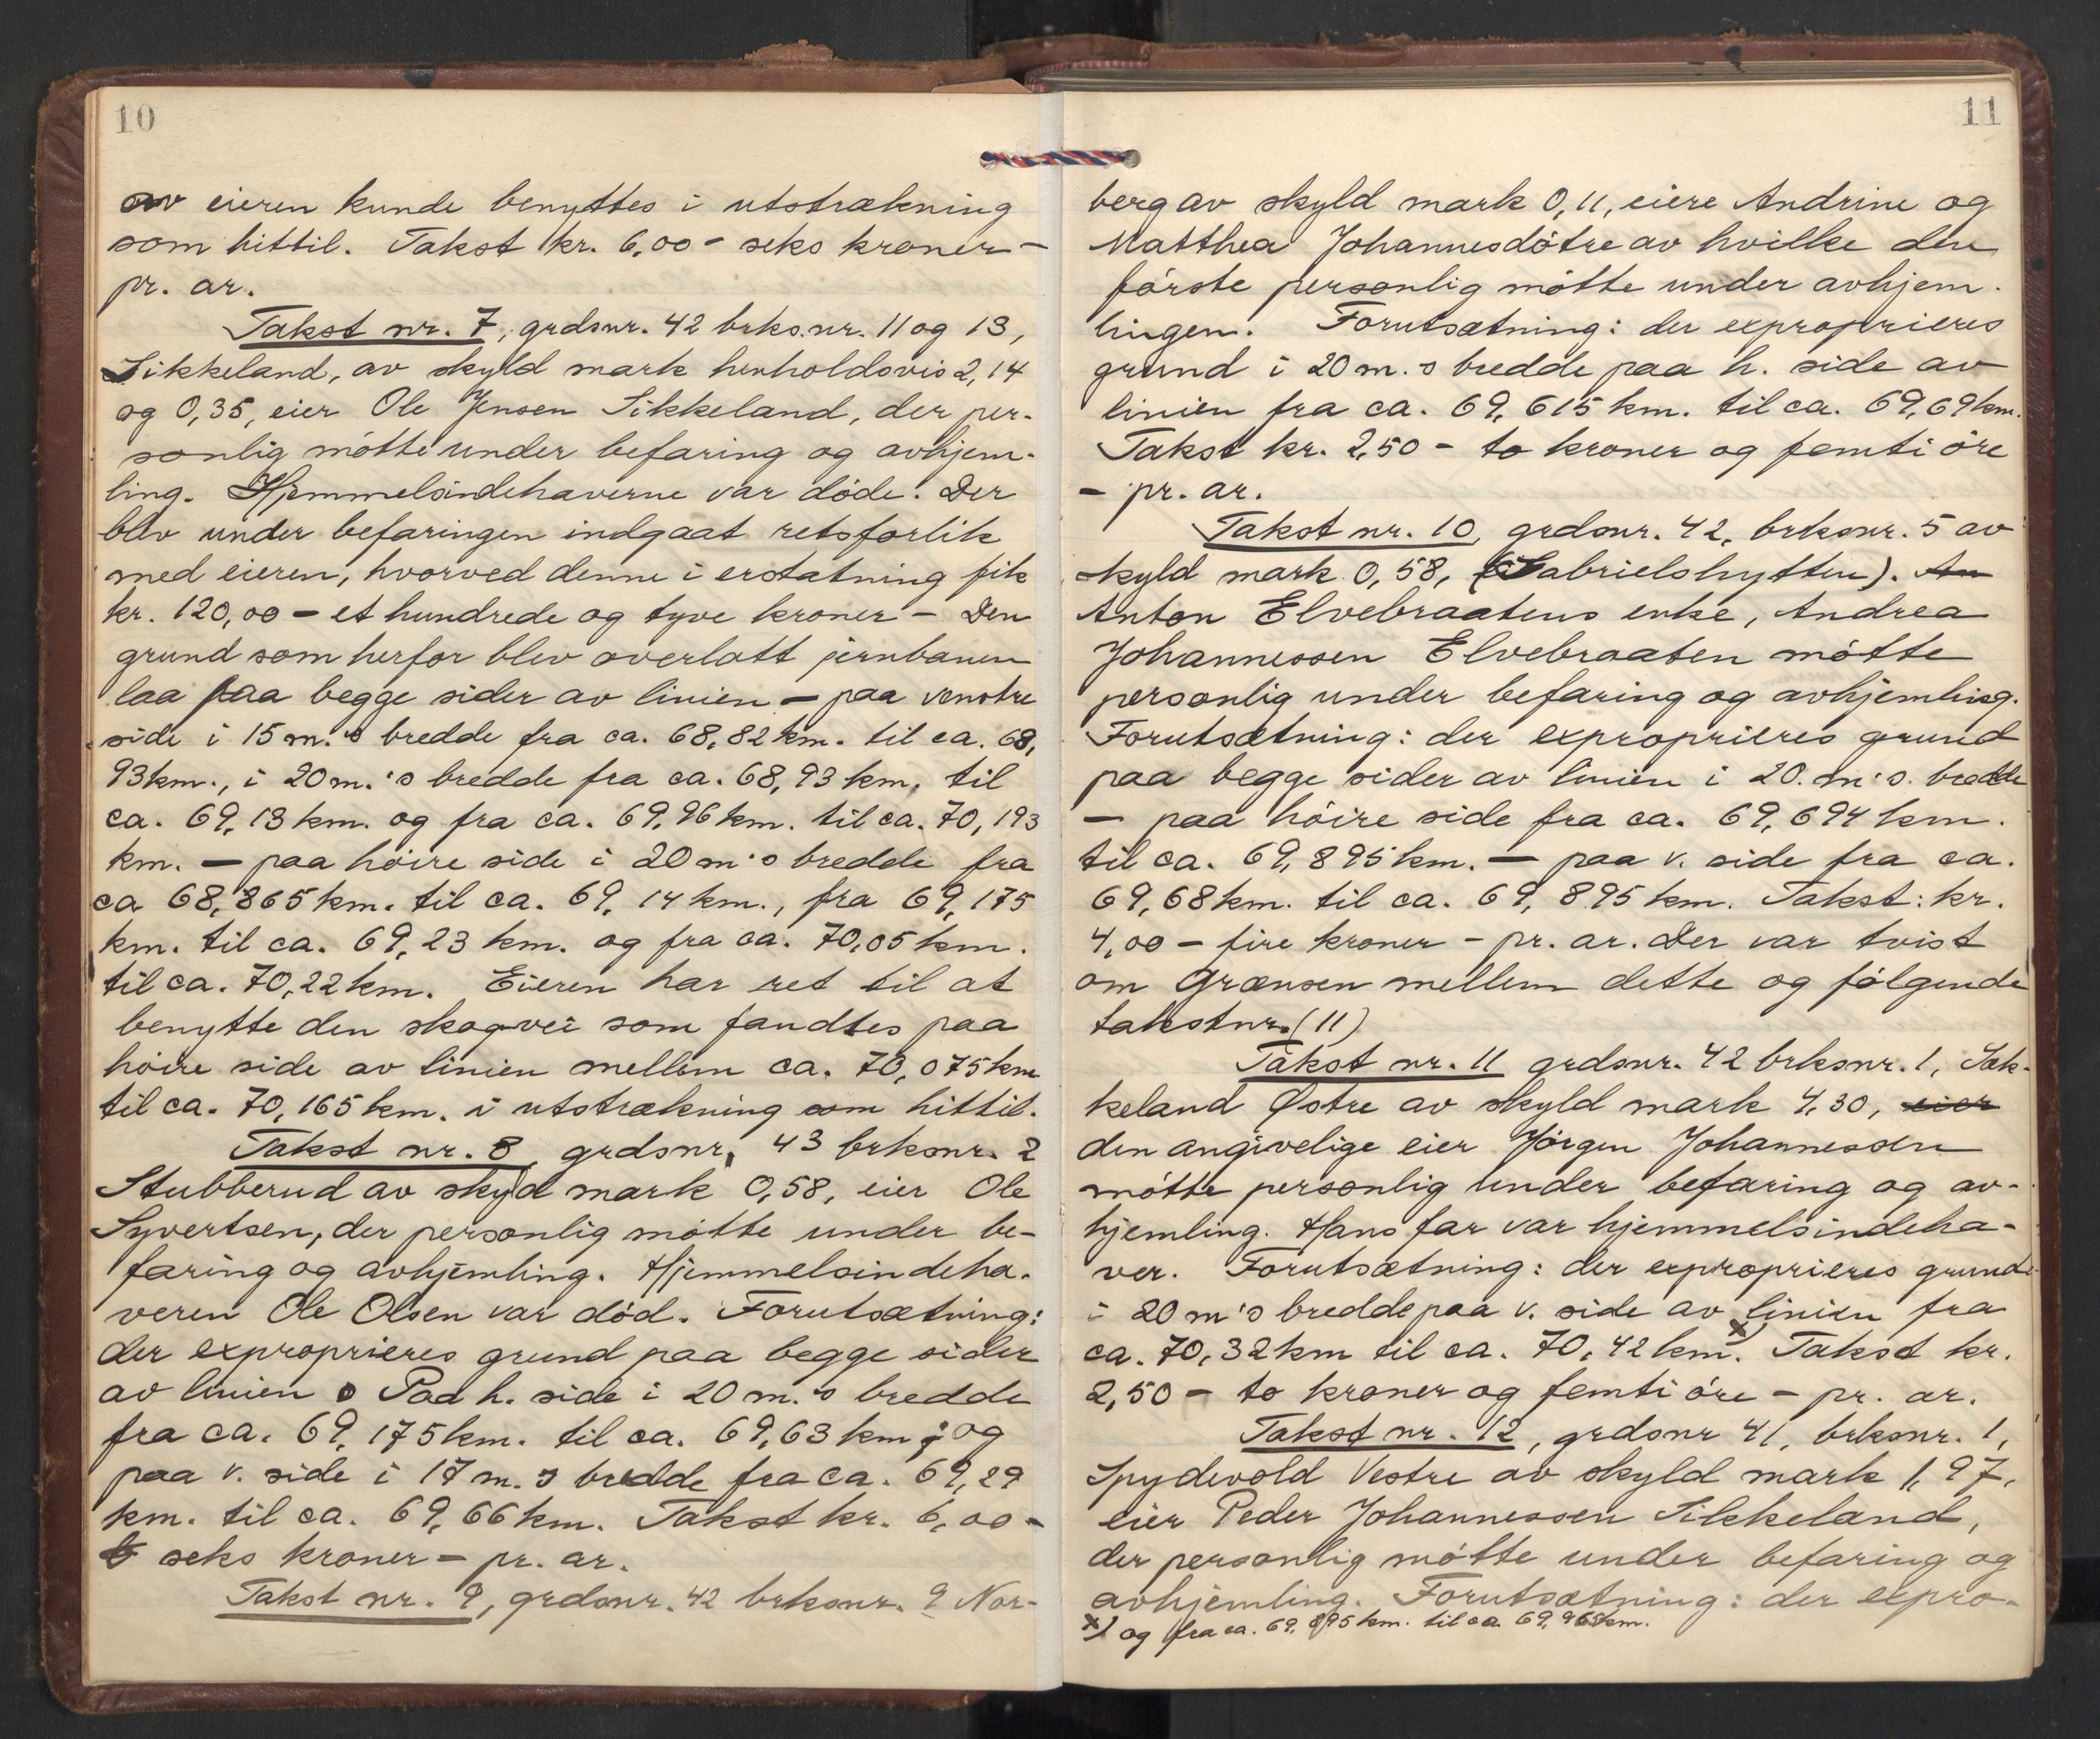 10
av eieren kunde benyttes i utstrækning
som hittil. Takst kr. 6,00 - seks kroner -
pr. ar.
Takst nr. 7, grdsnr. 42 brks.nr. 11 og 13,
Sikkeland, av skyld mark henholdsvis 2,14
og 0,35, eier Ole Jensen Sikkeland, der per-
sonlig mötte under befaring og avhjem-
ling. Hjemmelsindehaverne var döde. Der
blev under befaringen indgaat retsforlik
med eieren, hvorved denne i erstatning fik
kr. 120,00 - et hundrede og tyve kroner - Den
grund som herfor blev overlatt jernbanen
laa paa begge sider av linien - paa venstre
side i 15 m.'s bredde fra ca. 68,82 km. til ca. 68,
93 km., i 20 m.'s bredde fra ca. 68,93 km. til
ca. 69,13 km. og fra ca. 69,96 km. til ca. 70,193
km. - paa höire side i 20 m's bredde fra
ca 68,865 km. til ca. 69,14 km., fra 69,175
km. til ca. 69,23 km. og fra ca. 70,05 km.
til ca. 70,22 km. Eieren har ret til at
benytte den skogvei som fandtes paa
höire side av linien mellem ca. 70,075 km
til ca. 70,165 km. i utstrækning som hittil.
Takst nr. 8, grdsnr. 43 brksnr. 2
Stubberud av skyld mark 0,58, eier Ole
Syvertsen, der personlig mötte under be-
faring og avhjemling. Hjemmelsindeha-
veren Ole Olsen var död. Forutsætning:
der exproprieres grund paa begge sider
av linien. Paa h. side i 20 m.'s bredde
fra ca. 69,175 km. til ca. 69,63 km; og
paa v. side i 17 m.'s bredde fra ca. 69,29
km. til ca. 69,66 km. Takst kr. 6,00 -
seks kroner - pr. ar.
Takst nr. 9, grdsnr. 42 brksnr. 9 Nor-
11
berg av skyld mark 0,11, eiere Andrine og
Matthea Johannesdötre av hvilke den
förste personlig mötte under avhjem-
lingen. Forutsætning: der exproprieres
grund i 20 m.'s bredde paa h. side av
linien fra ca. 69,615 km. til ca. 69,69 km.
Takst kr. 2,50 - to kroner og femti öre
- pr. ar.
Takst nr. 10, grdsnr. 42, brksnr. 5 av
skyld mark 0,58, (Gabrielshytten). An
Anton Elvebraatens enke, Andrea
Johannessen Elvebraaten mötte
personlig under befaring og avhjemling.
Forutsætning: der exproprieres grund
paa begge sider av linien i 20. m's. bredde
- paa höire side fra ca. 69,694 km.
til ca. 69,895 km. - paa v. side fra ca.
69,68 km. til ca. 69,895 km. Takst: kr.
4,00 - fire kroner - pr. ar. Der var tvist
om Grænsen mellem dette og fölgende
takstnr. (11)
Takst nr. 11 grdsnr. 42 brksnr. 1, Sik-
keland Østre av skyld mark 4,30, eier
den angivelige eier Jörgen Johannessen
mötte personlig under befaring og av-
hjemling. Hans far var hjemmelsindeha-
ver. Forutsætning: der exproprieres grund
i 20 m's bredde paa v. side av linien fra
ca. 70,32 km til ca. 70,42 km. x) Takst kr.
2,50 - to kroner og femti öre - pr. ar.
Takst nr. 12, grdsnr 41, brksnr. 1,
Spydevold Vestre av skyld mark 1,97,
eier Peder Johannessen Sikkeland,
der personlig mötte under befaring og
avhjemling. Forutsætning: der expro-
x) og fra ca. 69,895 km. til ca. 69,965 km.